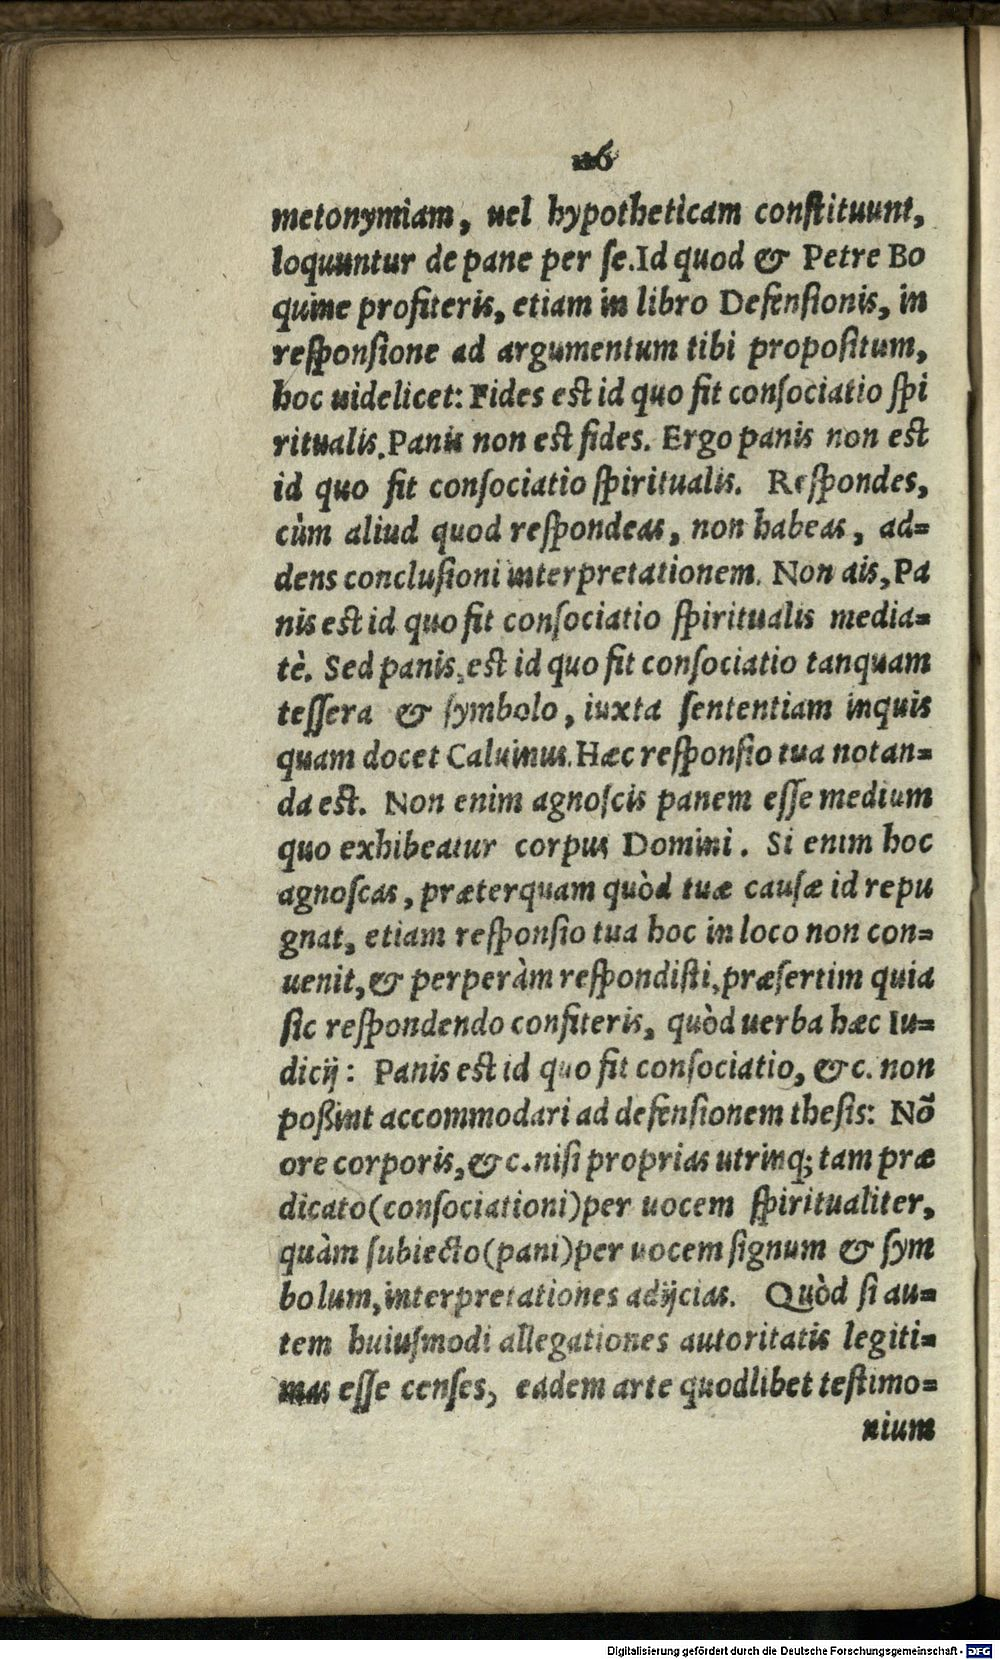 116
metonymiam, uel hypotheticam conſtituunt,
loquuntur de pane per ſe. Id quod & Petre Bo
quine profiteris, etiam in libro Defenſionis, in
reſponſione ad argumentum tibi propoſitum,
hoc uidelicet: Fides est id quo fit conſociatio ſpi
ritualis. Panis non est fides. Ergo panis non est
id quo fit conſociatio ſpiritualis. Reſpondes,
cùm aliud quod reſpondeas, non habeas, ad=
dens concluſioni interpretationem. Non ais, Pa
nis est id quo fit conſociatio ſpiritualis media=
tè. Sed panis, est id quo fit conſociatio tanquam
teſſera & ſymbolo, iuxta ſententiam inquis
quam docet Caluinus. Hæc reſponſio tua notan=
da est. Non enim agnoſcis panem eſſe medium
quo exhibeatur corpus Domini. Si enim hoc
agnoſcas, præterquam quòd tuæ cauſæ id repu
gnat, etiam reſponſio tua hoc in loco non con=
uenit, & perperàm reſpondiſti, præſertim quia
ſic reſpondendo confiteris, quòd uerba hæc Iu=
dicij: Panis est id quo fit conſociatio, &c. non
poßint accommodari ad defenſionem theſis: Nõ
ore corporis, &c. niſi proprias utrinq; tam præ
dicato (conſociationi) per uocem ſpiritualiter,
quàm ſubiecto (pani) per uocem ſignum & ſym
bolum, interpretationes adijcias. Quòd ſi au=
tem huiuſmodi allegationes autoritatis legiti=
mas eſſe cenſes, eadem arte quodlibet teſtimo=
nium
Digitalisierung gefördert durch die Deutsche Forschungsgemeinschaft - DFG